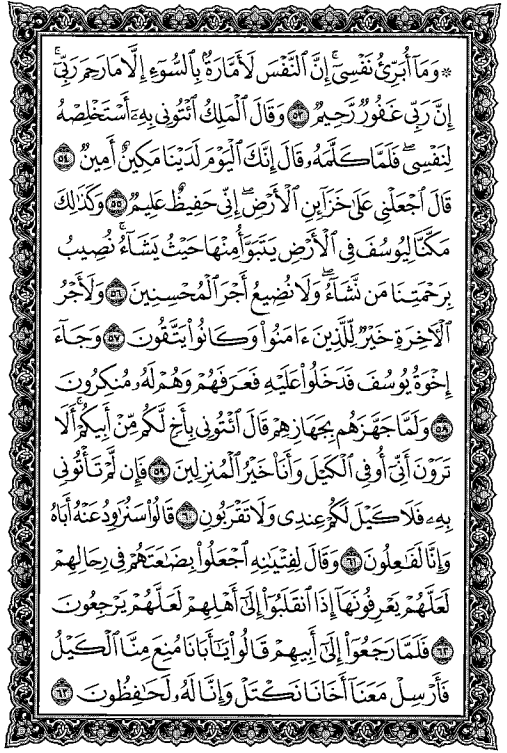 ۞ وَمَآ أُبَرِّئُ نَفْسِىٓ ۚ إِنَّ ٱلنَّفْسَ لَأَمَّارَةٌۢ بِٱلسُّوٓءِ إِلَّا مَا رَحِمَ رَبِّىٓ ۚ
إِنَّ رَبِّى غَفُورٌ رَّحِيمٌ ٥٣ وَقَالَ ٱلْمَلِكُ ٱئْتُونِى بِهِۦٓ أَسْتَخْلِصْهُ
لِنَفْسِى ۖ فَلَمَّا كَلَّمَهُۥ قَالَ إِنَّكَ ٱلْيَوْمَ لَدَيْنَا مَكِينٌ أَمِينٌ ٥٤
قَالَ ٱجْعَلْنِى عَلَىٰ خَزَآئِنِ ٱلْأَرْضِ ۖ إِنِّى حَفِيظٌ عَلِيمٌ ٥٥ وَكَذَٰلِكَ
مَكَّنَّا لِيُوسُفَ فِى ٱلْأَرْضِ يَتَبَوَّأُ مِنْهَا حَيْثُ يَشَآءُ ۚ نُصِيبُ
بِرَحْمَتِنَا مَن نَّشَآءُ ۖ وَلَا نُضِيعُ أَجْرَ ٱلْمُحْسِنِينَ ٥٦ وَلَأَجْرُ
ٱلْـَٔاخِرَةِ خَيْرٌ لِّلَّذِينَ ءَامَنُوا۟ وَكَانُوا۟ يَتَّقُونَ ٥٧ وَجَآءَ
إِخْوَةُ يُوسُفَ فَدَخَلُوا۟ عَلَيْهِ فَعَرَفَهُمْ وَهُمْ لَهُۥ مُنكِرُونَ
٥٨ وَلَمَّا جَهَّزَهُم بِجَهَازِهِمْ قَالَ ٱئْتُونِى بِأَخٍ لَّكُم مِّنْ أَبِيكُمْ ۚ أَلَا
تَرَوْنَ أَنِّىٓ أُوفِى ٱلْكَيْلَ وَأَنَا۠ خَيْرُ ٱلْمُنزِلِينَ ٥٩ فَإِن لَّمْ تَأْتُونِى
بِهِۦ فَلَا كَيْلَ لَكُمْ عِندِى وَلَا تَقْرَبُونِ ٦٠ قَالُوا۟ سَنُرَٰوِدُ عَنْهُ أَبَاهُ
وَإِنَّا لَفَٰعِلُونَ ٦١ وَقَالَ لِفِتْيَٰنِهِ ٱجْعَلُوا۟ بِضَٰعَتَهُمْ فِى رِحَالِهِمْ
لَعَلَّهُمْ يَعْرِفُونَهَآ إِذَا ٱنقَلَبُوٓا۟ إِلَىٰٓ أَهْلِهِمْ لَعَلَّهُمْ يَرْجِعُونَ
٦٢ فَلَمَّا رَجَعُوٓا۟ إِلَىٰٓ أَبِيهِمْ قَالُوا۟ يَٰٓأَبَانَا مُنِعَ مِنَّا ٱلْكَيْلُ
فَأَرْسِلْ مَعَنَآ أَخَانَا نَكْتَلْ وَإِنَّا لَهُۥ لَحَٰفِظُونَ ٦٣